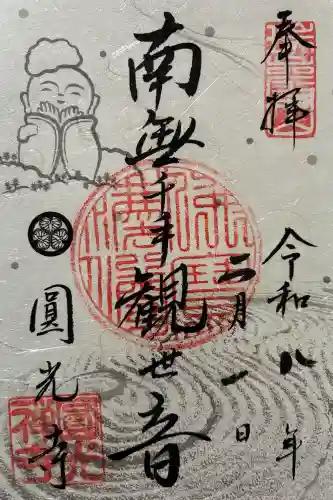 奉拝
令和八年
二月一日
南無千手観世音
圓光寺